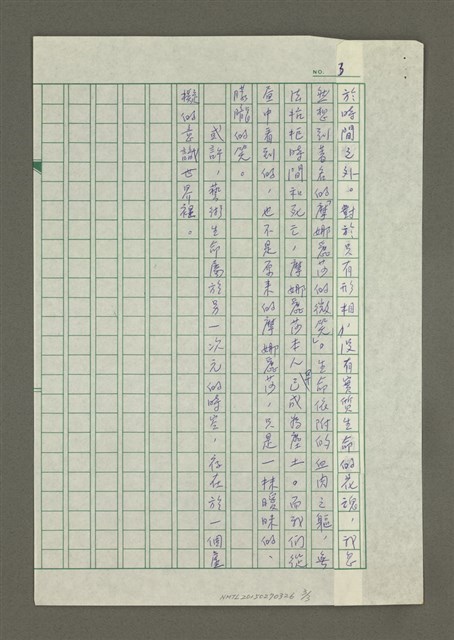 NO. 3
於時間之外。對於只有形相，沒有實質生命的花魂，我忽
然想到著名的「摩娜麗莎的微笑」。生命依附的血肉之軀，無
法抗拒時間和死亡，摩娜麗莎本人早已成為塵土。而我們從
畫中看到的，也不是原來的摩娜麗莎，只是一抹曖昧的、
朦朧的笑。
或許，藝術生命屬於另一次元的時空，存在於一個虛
擬的意識世界裡。
NMTL20150290806 3/5